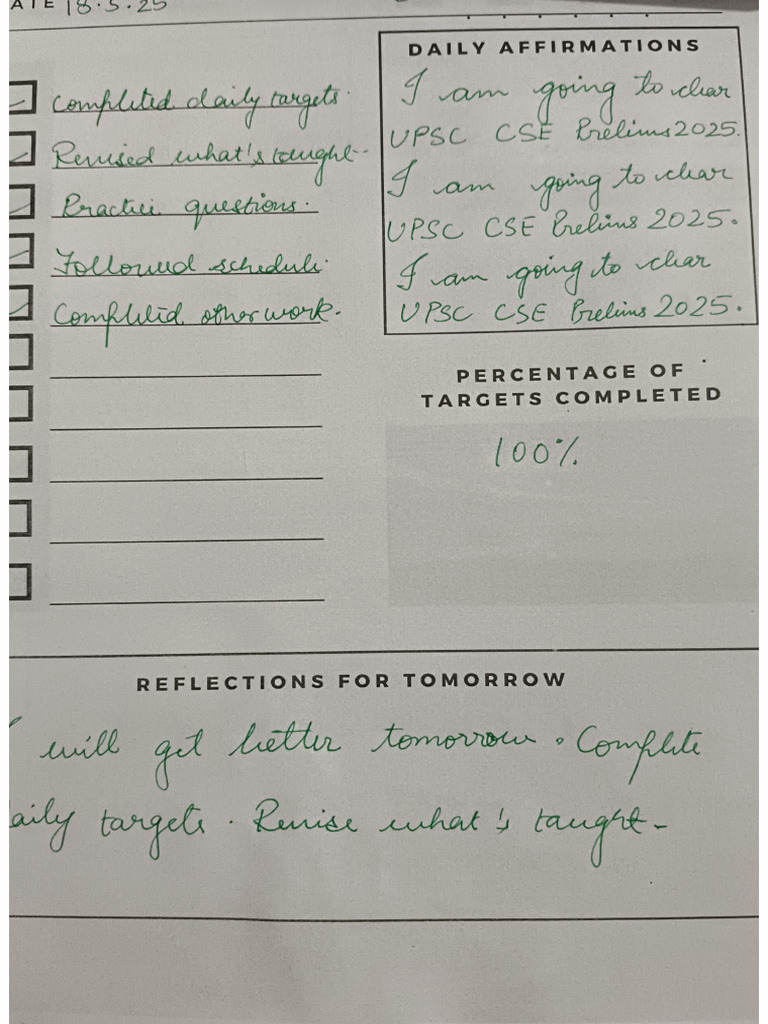 ATE 18.5.25
Completed daily targets.
Revised what's taught.
Practice questions.
Followed schedule.
Completed other work.
DAILY AFFIRMATIONS
I am going to clear
UPSC CSE Prelims 2025.
I am going to clear
UPSC CSE Prelims 2025.
I am going to clear
UPSC CSE Prelims 2025.
PERCENTAGE OF
TARGETS COMPLETED
100%
REFLECTIONS FOR TOMORROW
I will get better tomorrow. Complete
aily targets. Revise what's taught.